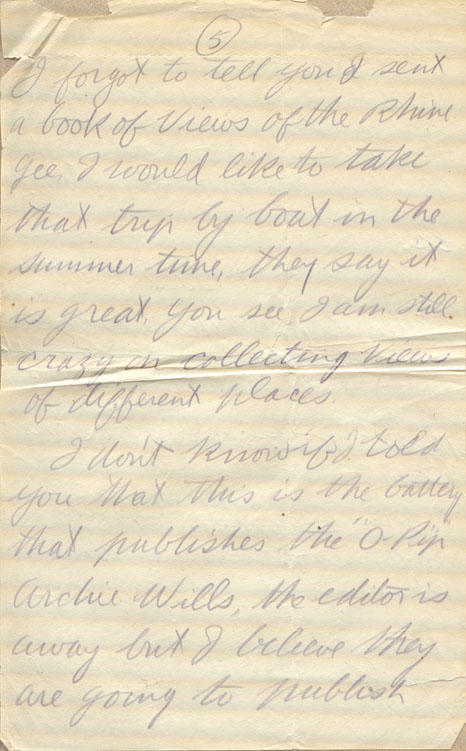 5
I forgot to tell you I sent
a book of Views of the Rhine
gee, I would like to take
that trip by boat in the
summer time, they say it
is great. You see I am still
crazy on collecting Views
of different places.
I don't know if I told
you that this is the battery
that publishes the "O-Pip"
Archie Wills, the editor is
away but I believe they
are going to publish